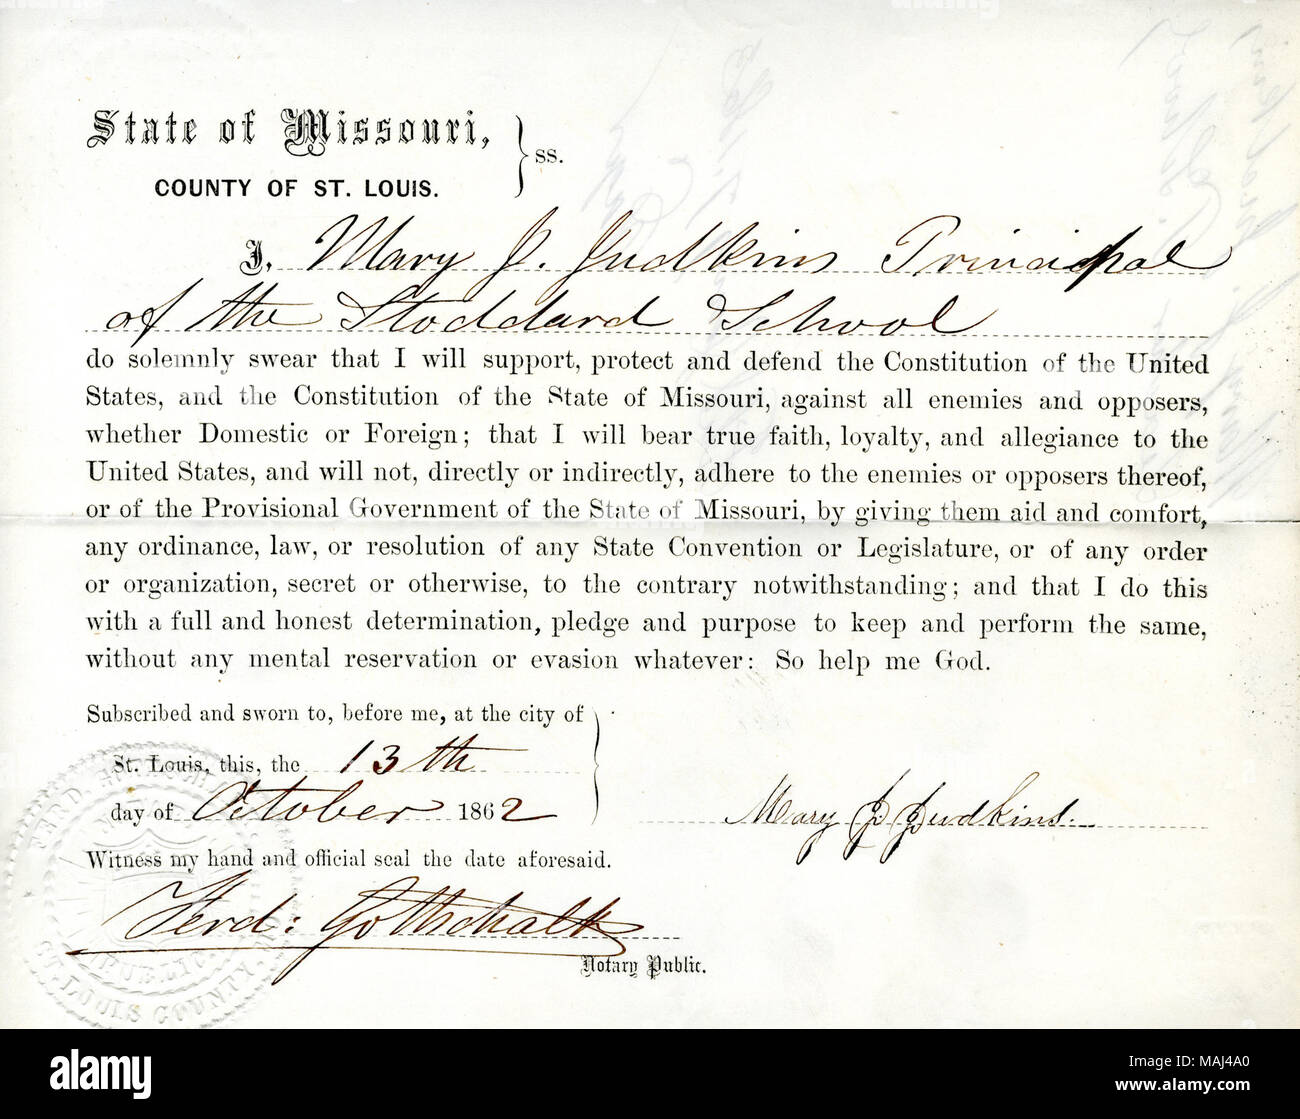 State of Missouri,
COUNTY OF ST. LOUIS.
ss.
I, Mary J. Judkins Principal
of the Stoddard School
do solemnly swear that I will support, protect and defend the Constitution of the United
States, and the Constitution of the State of Missouri, against all enemies and opposers,
whether Domestic or Foreign; that I will bear true faith, loyalty, and allegiance to the
United States, and will not, directly or indirectly, adhere to the enemies or opposers thereof,
or of the Provisional Government of the State of Missouri, by giving them aid and comfort,
any ordinance, law, or resolution of any State Convention or Legislature, or of any order
or organization, secret or otherwise, to the contrary notwithstanding; and that I do this
with a full and honest determination, pledge and purpose to keep and perform the same,
without any mental reservation or evasion whatever: So help me God.
Subscribed and sworn to, before me, at the city of
St. Louis, this, the 13th
day of October 1862
Mary J Judkins.
Witness my hand and official seal the date aforesaid.
Ferd: Gottschalk
Notary Public.
FERD
PUBLIC
ST. LOUIS COUNTY, MO.
alamy
Image ID: MAJ4A0
www.alamy.com